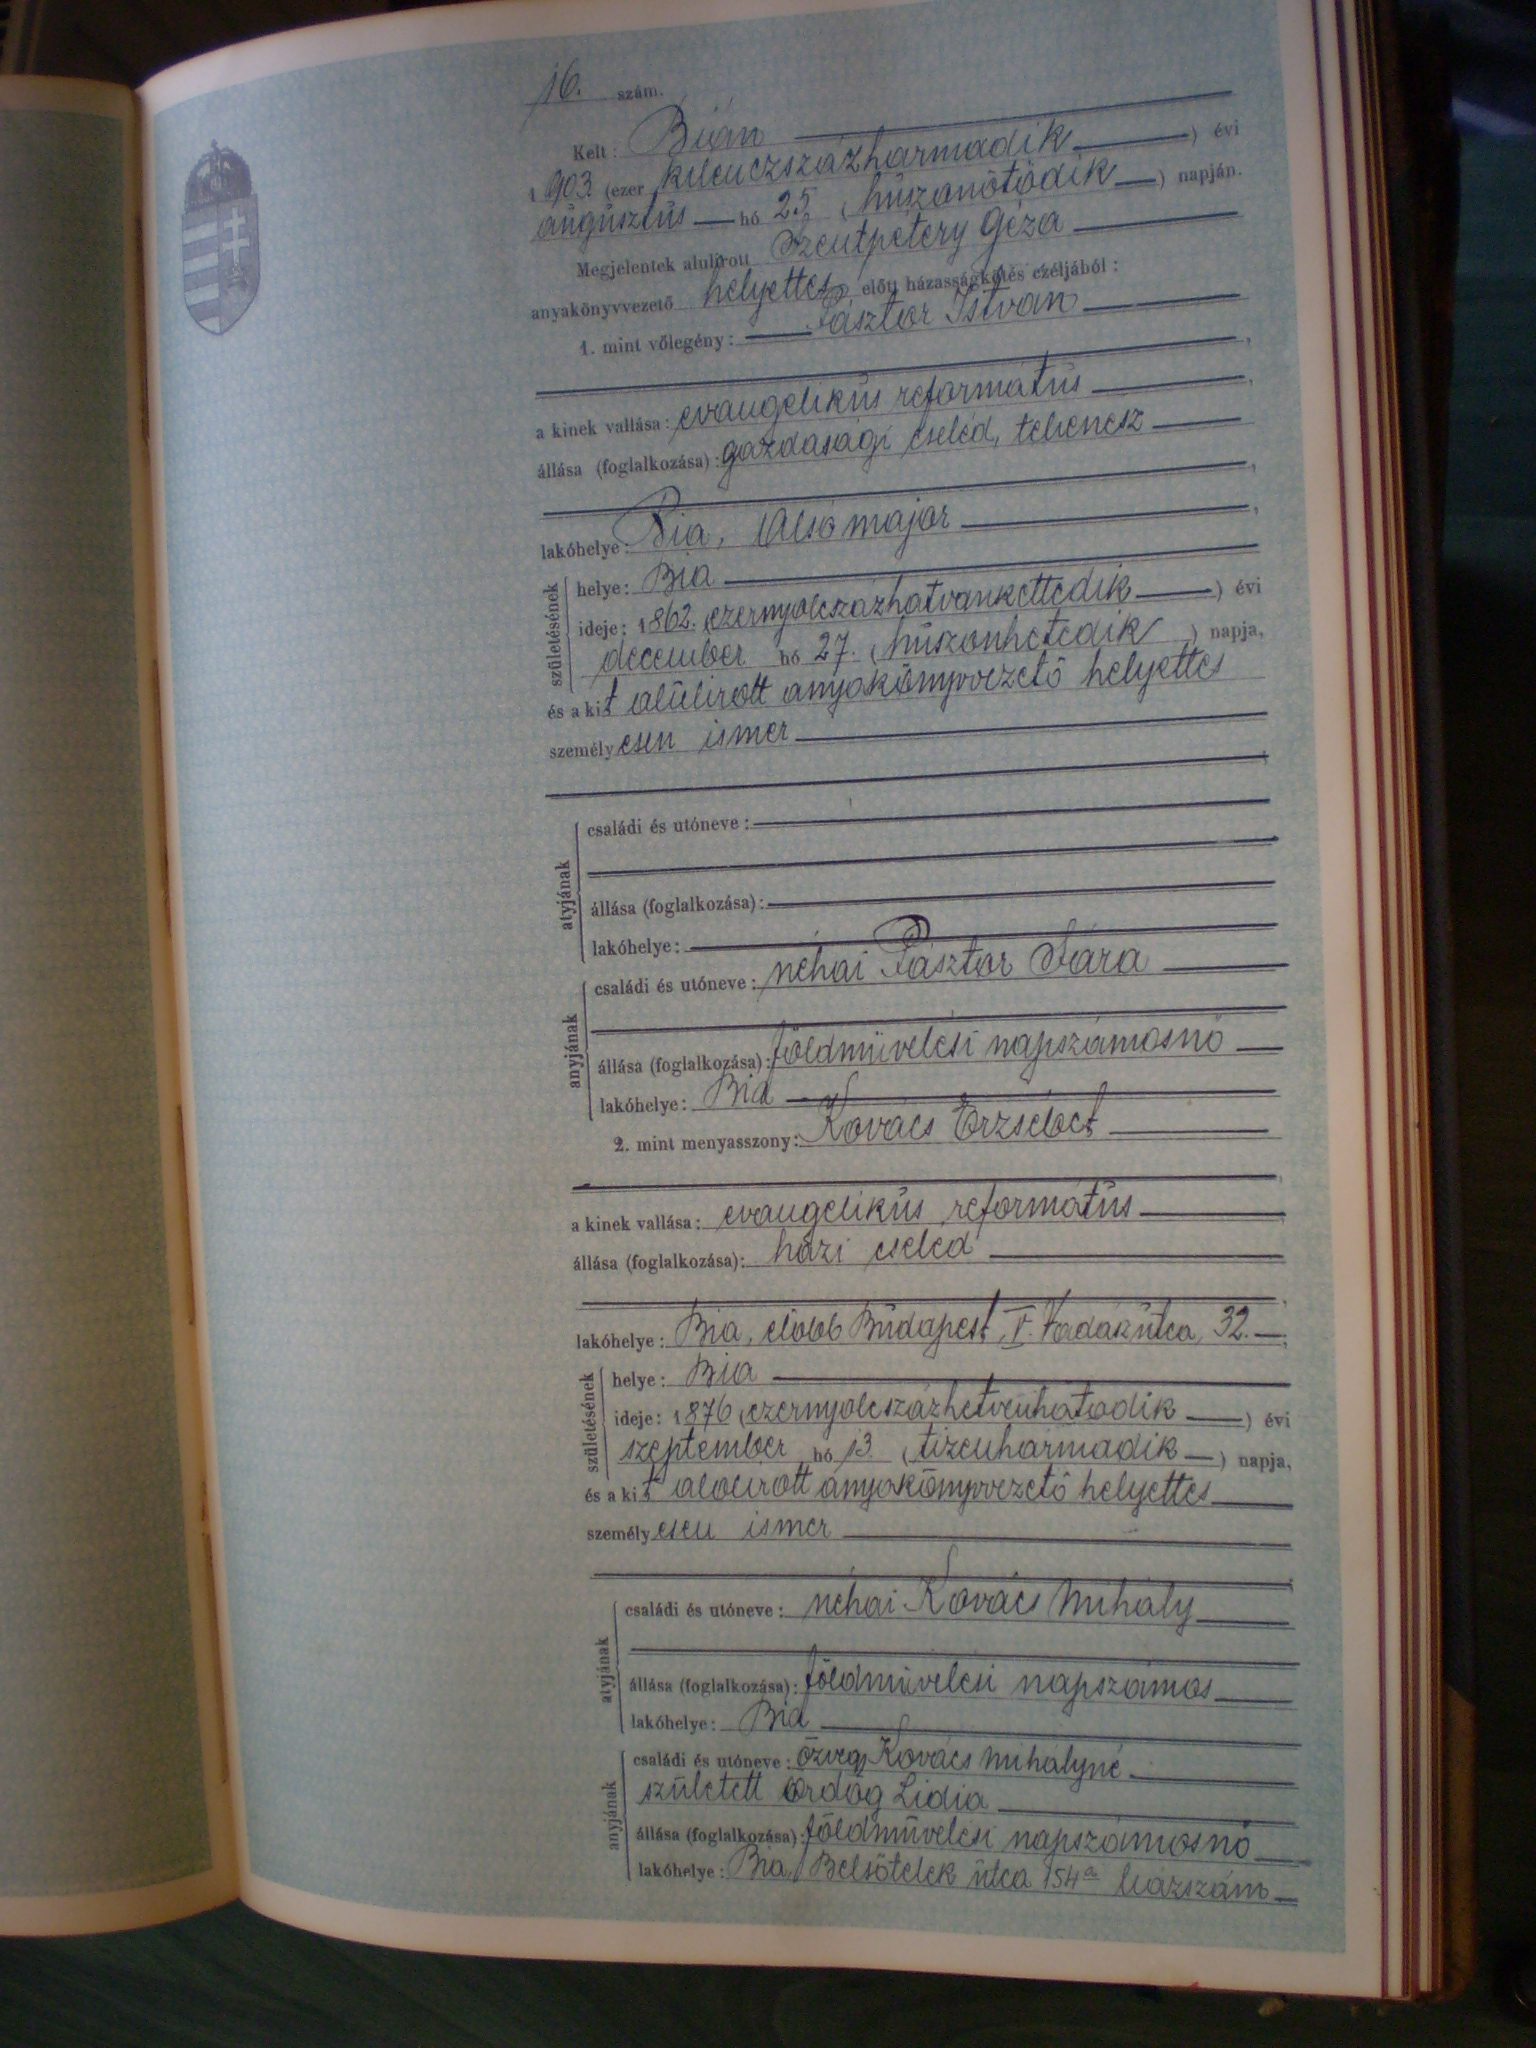 16. szám.
Kelt: Bián
1903. (ezer kilenczszázharmadik) évi
augusztus hó 25 (húszonötödik) napján.
Megjelentek alulirott Szentpétery Géza
anyakönyvvezető helyettes előtt házasságkötés czéljából:
1. mint vőlegény: Pásztor István
a kinek vallása: evangelikus református
állása (foglalkozása): gazdasági cseléd, tehenész
lakóhelye: Bia, Alsó major
születésének
helye: Bia
ideje: 1862. (ezernyolcszázhatvankettedik) évi
december hó 27. (húszonhetedik) napja,
és a kit alulirott anyakönyvvezető helyettes
személyesen ismer
atyjának
családi és utóneve:
állása (foglalkozása):
lakóhelye:
anyjának
családi és utóneve: néhai Pásztor Sára
állása (foglalkozása): földmüvelési napszámosnő
lakóhelye: Bia
2. mint menyasszony: Kovács Erzsébet
a kinek vallása: evangelikus református
állása (foglalkozása): házi cseléd
lakóhelye: Bia, előbb Budapest, I. Vadász utca, 32.
születésének
helye: Bia
ideje: 1876 (ezernyolcszázhetvenhatodik) évi
szeptember hó 13. (tizenharmadik) napja,
és a kit alolirott anyakönyvvezető helyettes
személyesen ismer
atyjának
családi és utóneve: néhai Kovács Mihály
állása (foglalkozása): földmüvelési napszámos
lakóhelye: Bia
anyjának
családi és utóneve: özvegy Kovács Mihályné
született Ördög Lidia
állása (foglalkozása): földmüvelési napszámosnő
lakóhelye: Bia, Belsőtelek utca 154a házszám